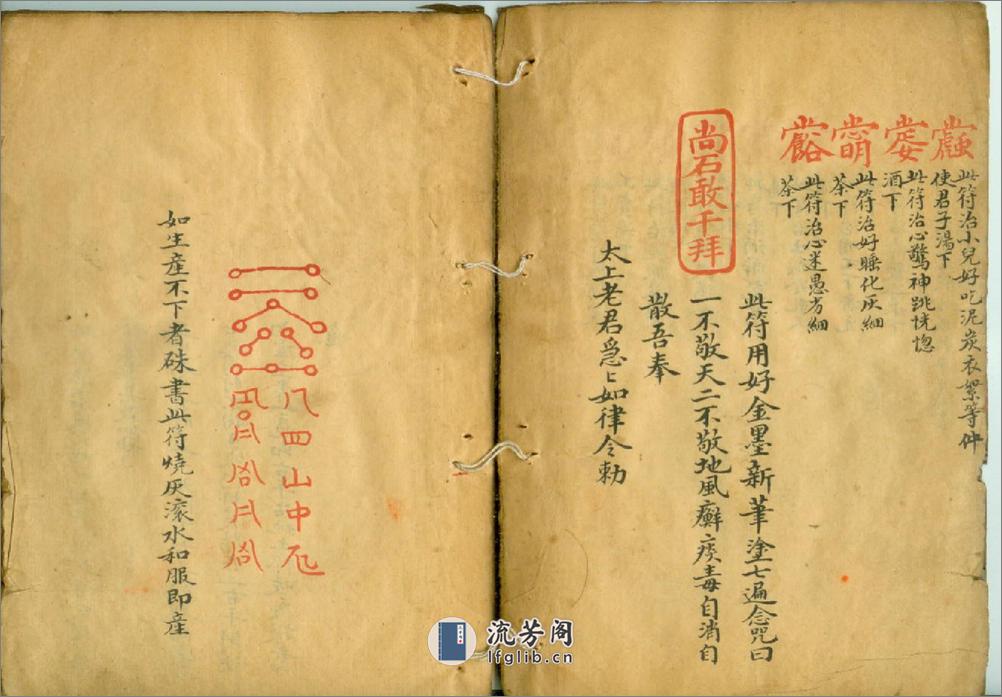 此符治小兒好吃泥炭衣絮等件
使君子湯下
此符治心驚神跳恍惚
酒下
此符治好睡化灰細
茶下
此符治心迷愚方細
茶下
尚石敢千拜
此符用好金墨新筆塗七遍念咒曰
一不敬天二不敬地風癬痰毒自消自
散吾奉
太上老君急々如律令勅
八四山中
如生產不下者硃書此符燒灰滾水和服即產
流芳阁
lfglib.cn